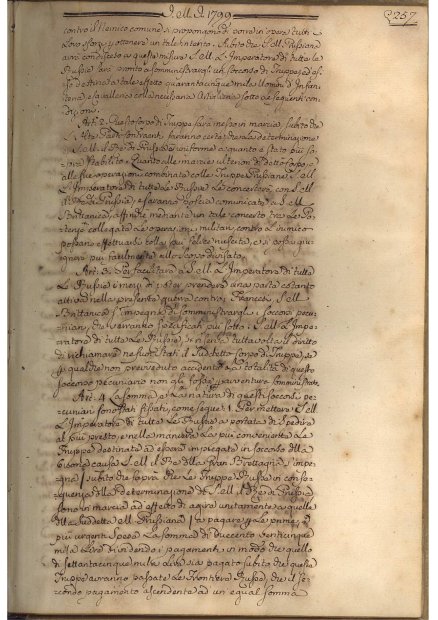 I. M. I. 1799
257
contro il Nemico comune si propongono di porre in opera tutti i
loro sforzi p ottenere un tale intento. Subito che S. M. Prussiana
avrà condisceso a queste misure S. M. L'Imperatore di tutte le
Russie sarà pronto a somministrargli un soccorso di Truppe, ed es-
so destina a tale effetto quarantacinque mila Uomini d'Infan-
teria e Cavalleria colla necessaria Artiglieria sotto le seguenti con-
dizioni.
Art. 2. Questo corpo di Truppe sarà messo in marcia, subito che
le Alte Parti Contraenti saranno certe della determinazione
di S. M. il Re di Prussia conforme a quanto è stato più so-
pra stabilito. Quanto alle marcie ulteriori di detto corpo, e
alle sue operazioni combinate colle Truppe Prussiane S. M.
L'Imperatore di tutte le Russie le concerterà con S. M.
il Re di Prussia, e saranno poscia comunicate a S. M.
Britannica, affinchè mediante un tale concerto tra le Po-
tenze collegate le operazioni militari contro l'inimico
possano effettuarsi colla più felice riuscita, e si possa giu-
gnere più facilmente allo scopo divisato.
Art. 3. Per facilitare a S. M. L'Imperatore di tutte
le Russie i mezzi di poter prendere una parte cotanto
attiva nella presente guerra contro i Francesi, S. M.
Britanica s'impegna di somministrargli i soccorsi pecu-
niarj, che verranno specificati più sotto. S. M. L'Im-
peratore di tutte le Russie si riserva tuttavolta il diritto
di richiamare ne' suoi Stati il suddetto corpo di Truppe, se
p qualche non preveduto accidente la totalità di questo
soccorso pecuniario non gli fosse p avventura somministrata.
Art. 4. La somma, e la natura di questi soccorsi pe-
cuniarj sono stati fissati, come segue: 1. Per mettere S. M.
L'Imperatore di tutte le Russie a portata di spedire
al più presto, e nella maniera la più conveniente le
Truppe destinate ad essere impiegate in soccorso della
buona causa S. M. il Re della Gran Brettagna s'impe-
gna (subito che saprà che le Truppe Russe in con-
seguenza della determinazione di S. M. il Re di Prussia
sono in marcia ad effetto di agire unitamente a quelle
della suddetta M. Prussiana) a pagare p le prime, e
più urgenti spese la somma di duecento venticinque
mila Lire dividendo i pagamenti in modo che quello
di settantacinque mila Lire sia pagato subito che queste
Truppe avranno passate le Frontiere Russe, che il se-
condo pagamento ascendente ad un egual somma